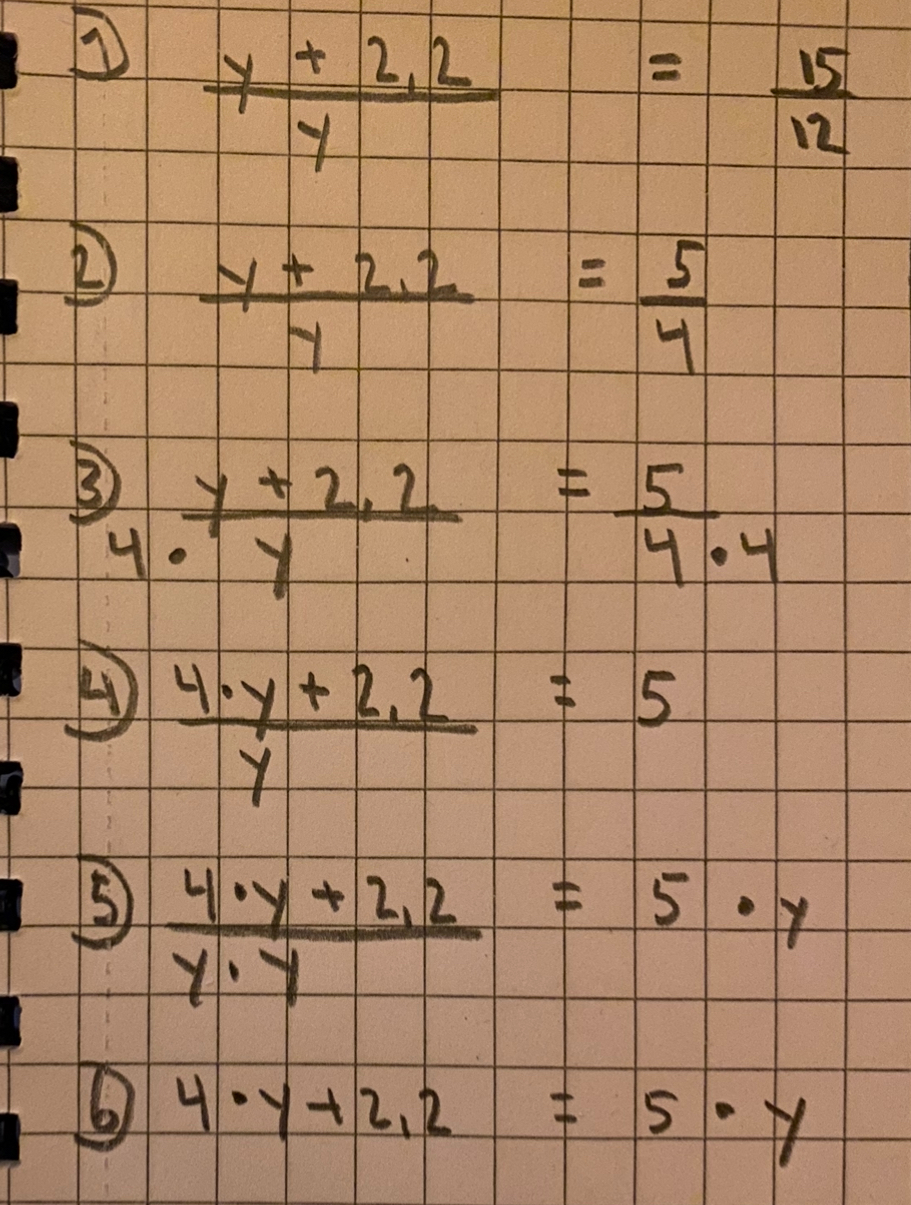 ① y + 2,2 / y = 15 / 12
② y + 2,2 / y = 5 / 4
③ y + 2,2 / 4 · y = 5 / 4 · 4
④ 4 · y + 2,2 / y = 5
⑤ 4 · y + 2,2 / y · y = 5 · y
⑥ 4 · y + 2,2 = 5 · y